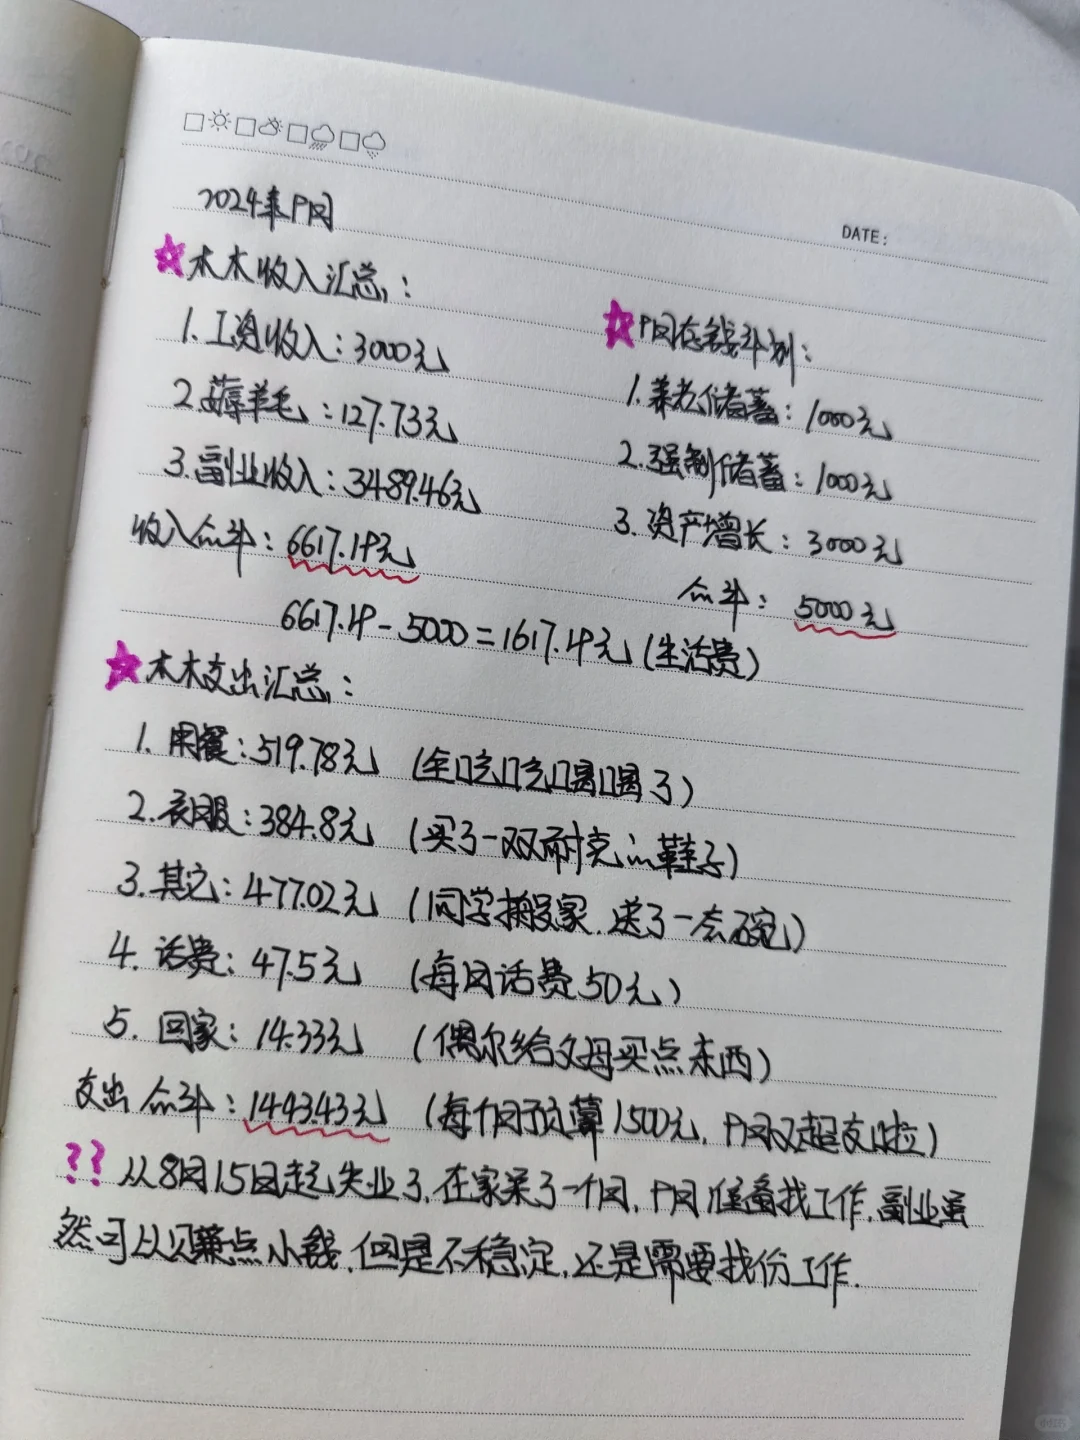 DATE:
2024年9月
木木收入汇总:
1.工资收入:3000元
2.薅羊毛:127.73元
3.副业收入:3489.46元
收入合计:6617.19元
9月存钱计划:
1.养老储蓄:1000元
2.强制储蓄:1000元
3.资产增长:3000元
合计:5000元
6617.19-5000=1617.19元(生活费)
木木支出汇总:
1.用餐:519.78元(全吃吃喝喝了)
2.衣服:384.8元(买了一双耐克的鞋子)
3.其它:477.02元(同学搬家,送了一套碗)
4.话费:47.5元(每月话费50元)
5.回家:14.33元(偶尔给父母买点东西)
支出合计:1443.43元(每个月预算1500元,9月没超支啦)
??从8月15日起失业了,在家呆了一个月,9月准备找工作,副业虽
然可以赚点小钱,但是不稳定,还是需要找份工作.